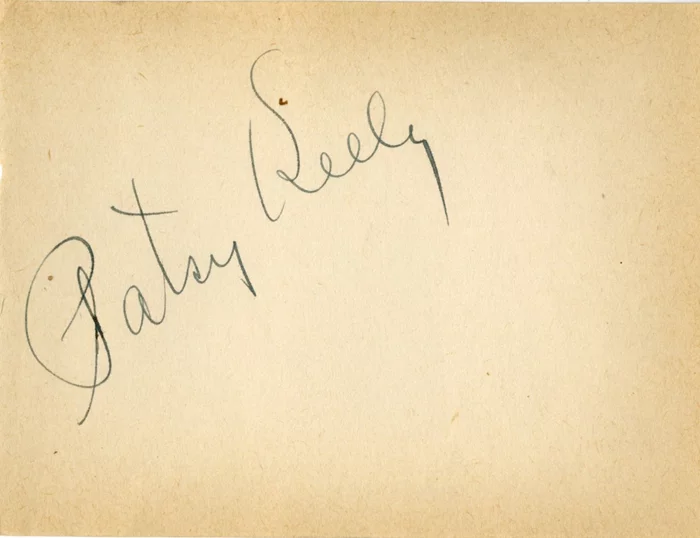 Patsy Kelly